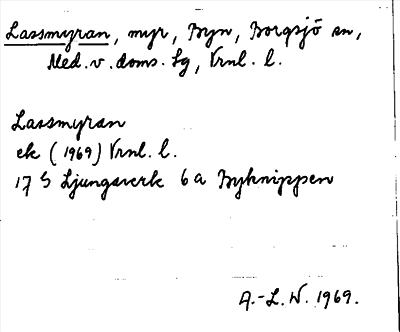 Lassmyran, myr, Byn, Borgsjö sn,
Med. v. doms. lg, Vrnl. l.
Lassmyran
ek (1969) Vrnl. l.
17 S Ljungaverk 6 a Byknippen
A.-L. W. 1969.